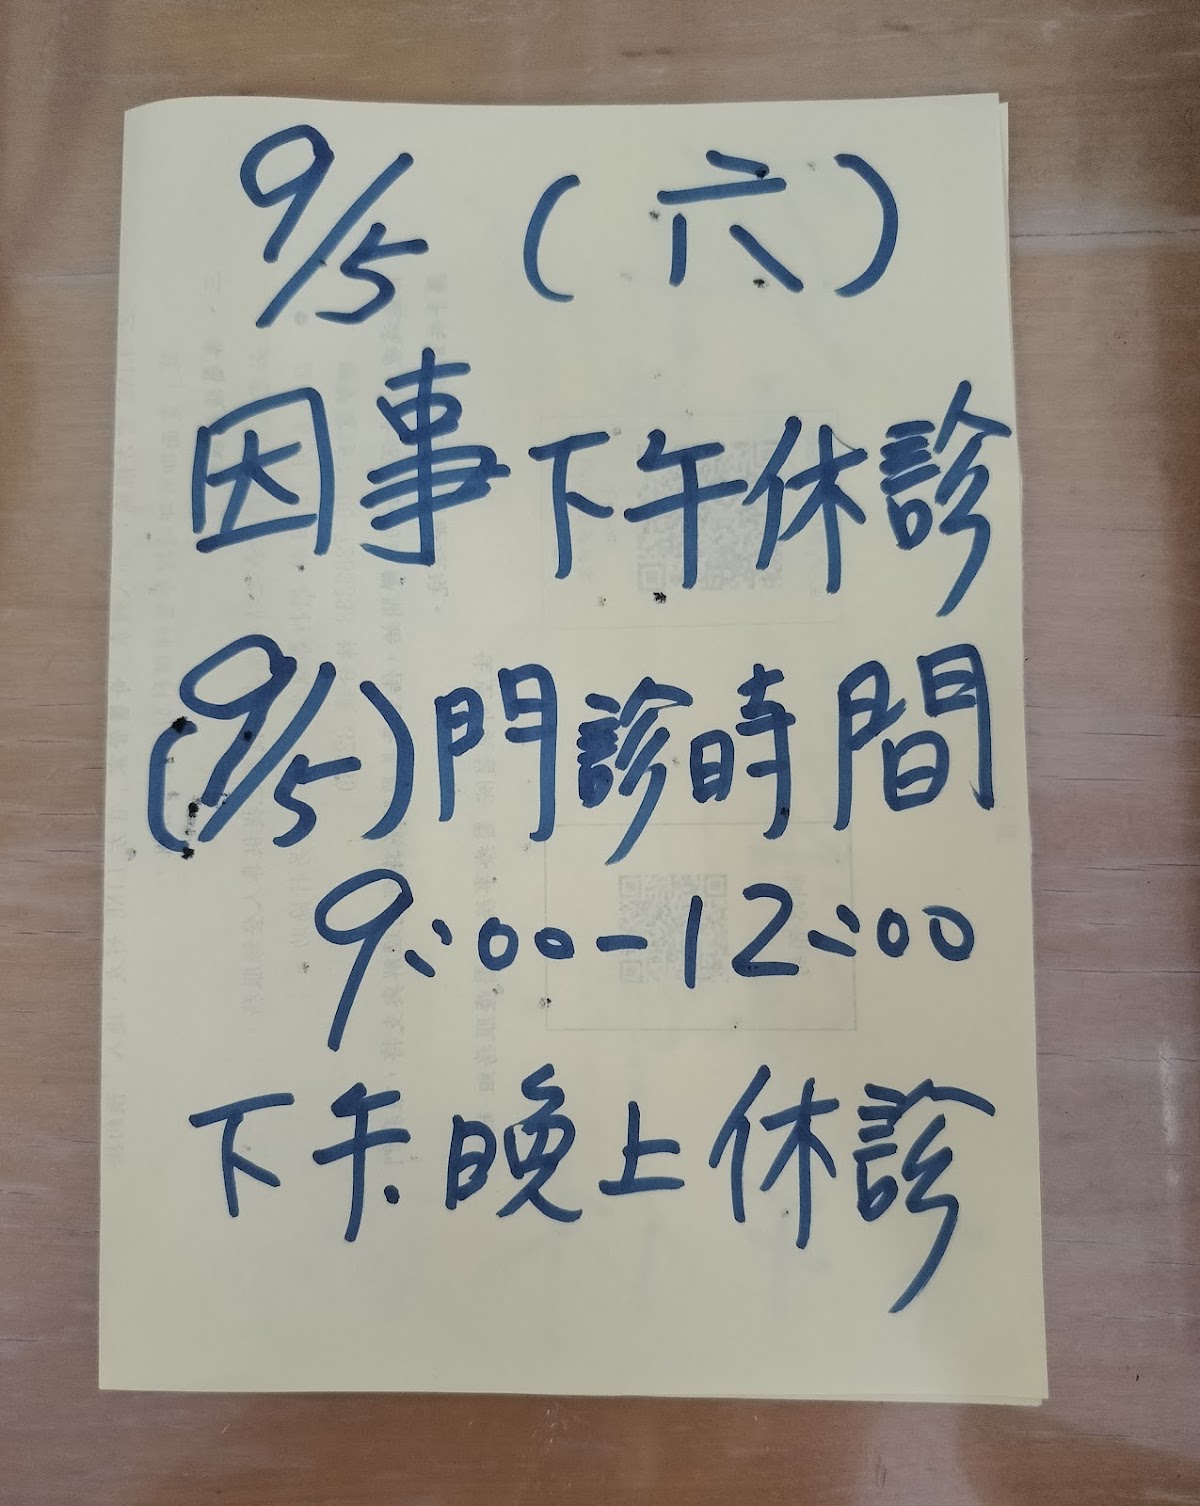 9/5 (六)
因事下午休診
(9/5)門診時間
9:00-12:00
下午.晚上休診